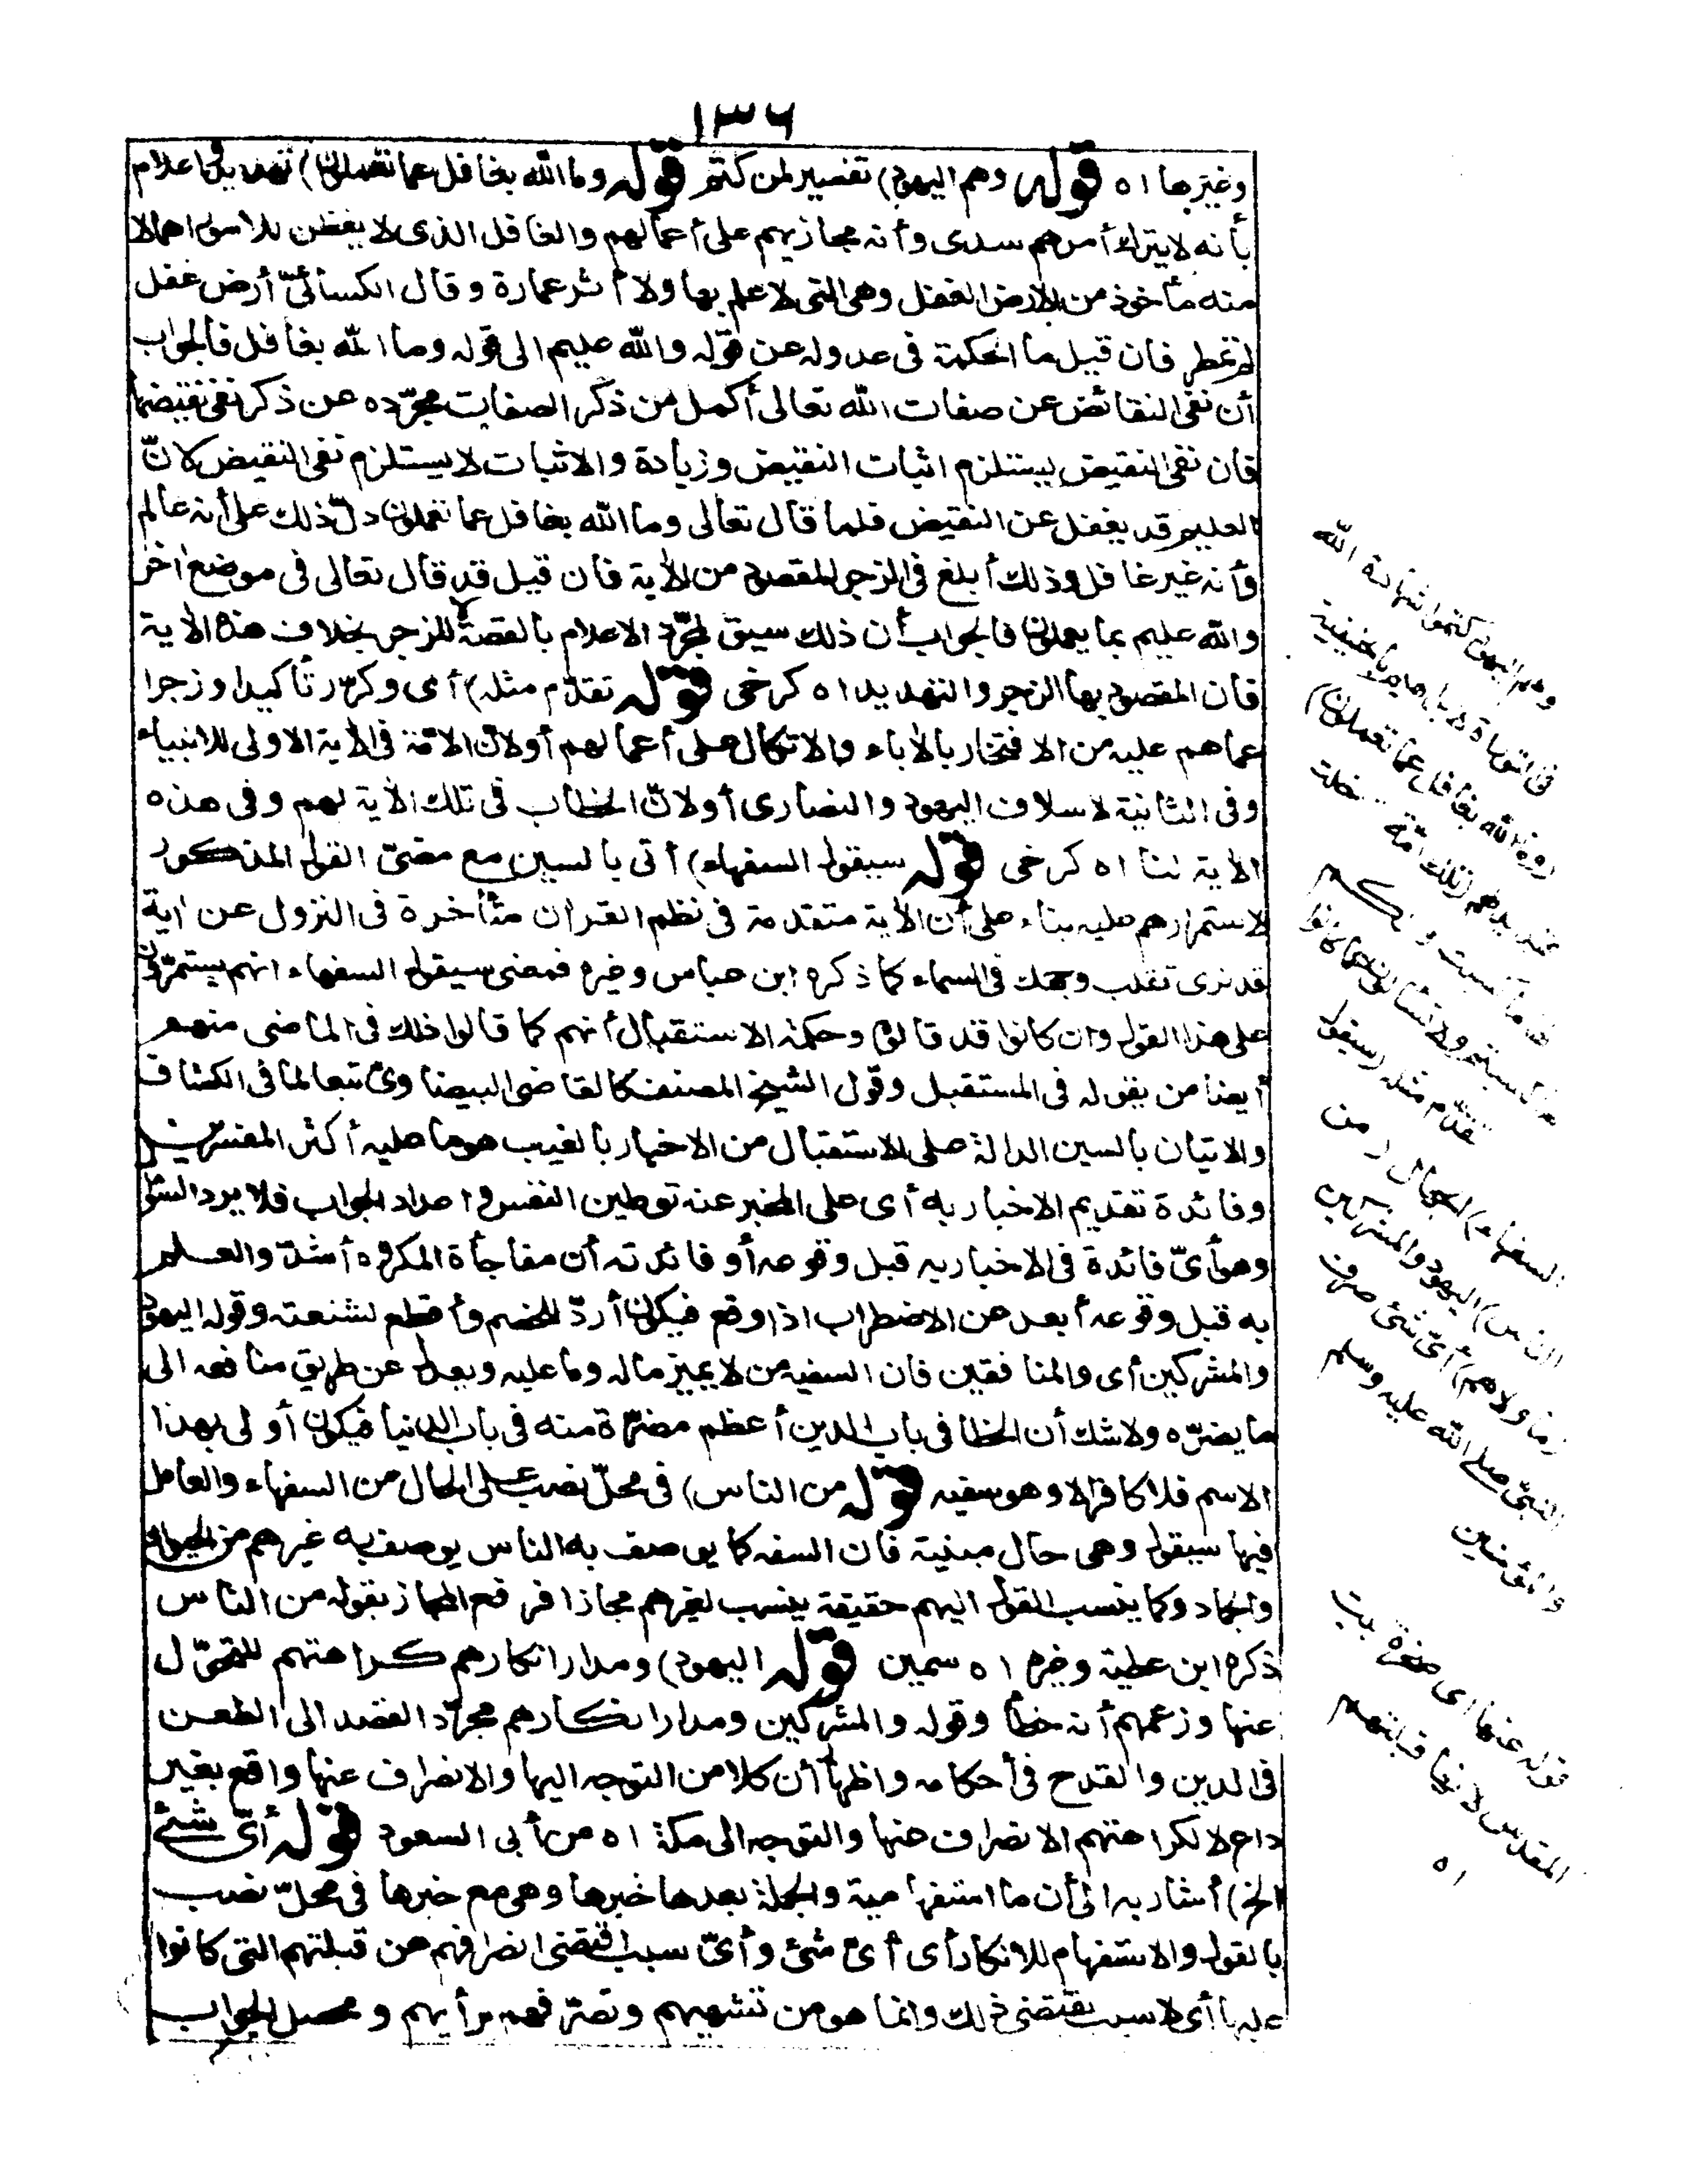 ١٣٦
وغيرها اه قوله وهم اليهود) تفسير لمن كتم قوله وما الله بغافل عما تعملون) تهديد واعلام
بأنه لا يترك أمرهم سدى وأنه مجازيهم على أعمالهم والغافل الذى لا يفطن للاموراهمالا
منه مأخوذ من الارض الغفل وهى التى لا علم بها ولا أثر عمارة وقال الكسائىّ أرض غفل
لم تمطر فان قيل ما الحكمة فى عدوله عن قوله والله عليم الى قوله وما الله بغافل فالجواب
أن نفى النقائص عن صفات الله تعالى أكمل من ذكر الصفات مجرّده عن ذكر نفى نقيضها
فان نفى النقيض يستلزم اثبات النقيض وزيادة والاثبات لا يستلزم نفى النقيض لانّ
العليم قد يغفل عن النقيض فلما قال تعالى وما الله بغافل عما تعملون دلّ ذلك على أنه عالم
وأنه غير غافل وذلك أبلغ فى الزجر المقصود من الآية فان قيل قد قال تعالى فى موضع اخر
والله عليم بما يعملون فالجواب أن ذلك سيق لمجرّد الاعلام بالقصة لا للزجر بخلاف هذه الآية
فان المقصود بها الزجر والتهديد اه كرخى قوله تقدّم مثله) أى وكرّر تأكيدا وزجرا
عماهم عليه من الافتخار بالآباء والاتكال على أعمالهم أولانّ الامّة فى الآية الاولى للانبياء
وفى الثانية لاسلاف اليهود والنصارى أولانّ الخطاب فى تلك الآية لهم وفى هذه
الآية لنا اه كرخى قوله سيقول السفهاء) أتى بالسين مع مضىّ القول المذكور
لاستمرارهم عليه بناء على أن الآية متقدمة فى نظم القران متأخرة فى النزول عن اية
قد نرى تقلب وجهك فى السماء كما ذكره ابن عباس وغيره فمعنى سيقول السفهاء انهم يستمرّون
على هذا القول وان كانوا قد قالوه وحكمة الاستقبال أنهم كما قالوا ذلك فى الماضى منهم
أيضا من يقوله فى المستقبل وقول الشيخ المصنف كالقاضى البيضاوى تبعا لما فى الكشاف
والاتيان بالسين الدالة على الاستقبال من الاخبار بالغيب هو ما عليه أكثر المفسرين
وفائدة تقديم الاخبار به أى على المخبر عنه توطين النفس واعداد الجواب فلا يرد السؤال
وهو أىّ فائدة فى الاخبار به قبل وقوعه أو فائدته أن مفاجأة المكروه أشدّ والعلم
به قبل وقوعه أبعد عن الاضطراب اذا وقع فيكون أردّ للخصم وأقطع لشنعته وقوله اليهود
والمشركين أى والمنافقين فان السفيه من لا يميز ماله وما عليه ويعدل عن طريق منافعه الى
ما يضرّه ولا شك أن الخطا فى باب الدين أعظم مضرّة منه فى باب الدنيا فيكون أولى بهذا
الاسم فلا كافر الا وهو سفيه قوله من الناس) فى محلّ نصب على الحال من السفهاء والعامل
فيها سيقول وهى حال مبنية فان السفه كما يوصف به الناس يوصف به غيرهم من الحيوان
والجماد وكما ينسب القول اليهم حقيقة ينسب لغيرهم مجازا فرفع المجاز بقوله من الناس
ذكره ابن عطية وغيره اه سمين قوله اليهود) ومدار انكارهم كراهتهم للتحوّل
عنها وزعمهم أنه خطأ وقوله والمشركين ومدار انكارهم مجرّد القصد الى الطعن
فى الدين والقدح فى أحكامه واظهار أن كلا من التوجه اليها والانصراف عنها واقع بغير
داع لا لكراهتهم الانصراف عنها والتوجه الى مكة اه من أبى السعود قوله أىّ شئ
الخ) أشار به الى أن ما استفهامية والجملة بعدها خبرها وهى مع خبرها فى محلّ نصب
بالقول والاستفهام للانكار أى أىّ شئ وأىّ سبب اقتضى انصرافهم عن قبلتهم التى كانوا
عليها أى لا سبب يقتضى ذلك وانما هو من تشهيهم وتصرّفهم برأيهم ومحصل الجواب
وهم اليهود كتموا شهادة الله
فى التوراة لابراهيم بالحنيفية
(وما الله بغافل عما تعملون)
تهديد لهم (تلك امّة قد خلت
لها ما كسبت ولكم
ما كسبتم ولا تسألون عما كانوا
تقدّم مثله (سيقول
السفهاء) الجهال (من
الناس) اليهود والمشركين
(ما ولاهم) أىّ شئ صرف
النبىّ صلى الله عليه وسلم
والمؤمنين
قوله عنها اى صخرة بيت
المقدس لانها قبلتهم
اه